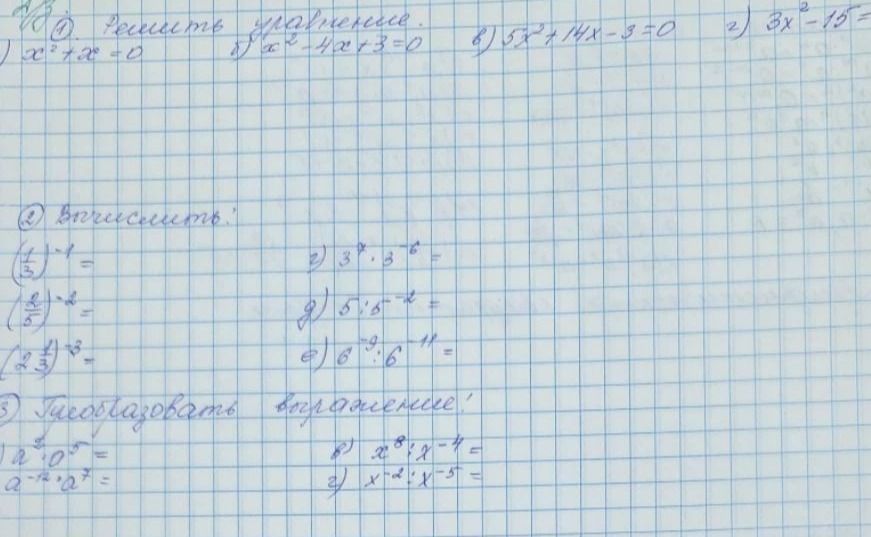 Д/з.
① Решить уравнение.
) x² + x = 0 б) x² - 4x + 3 = 0 в) 5x² + 14x - 3 = 0 г) 3x² - 15 =
② Вычислить:
(1/3)⁻¹ = г) 3⁷ · 3⁻⁶ =
(2/5)⁻² = д) 5 : 5⁻² =
(2 1/3)⁻³ = е) 6⁻⁹ : 6⁻¹¹ =
3) Преобразовать выражение:
) a : a⁵ = в) x⁸ : x⁻⁴ =
a⁻¹² · a⁷ = г) x⁻² : x⁻⁵ =